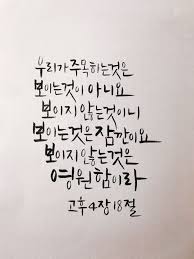 우리가 주목하는것은
보이는것이 아니요
보이지 않는것이니
보이는것은 잠깐이요
보이지않는것은
영원함이라
고후4장18절